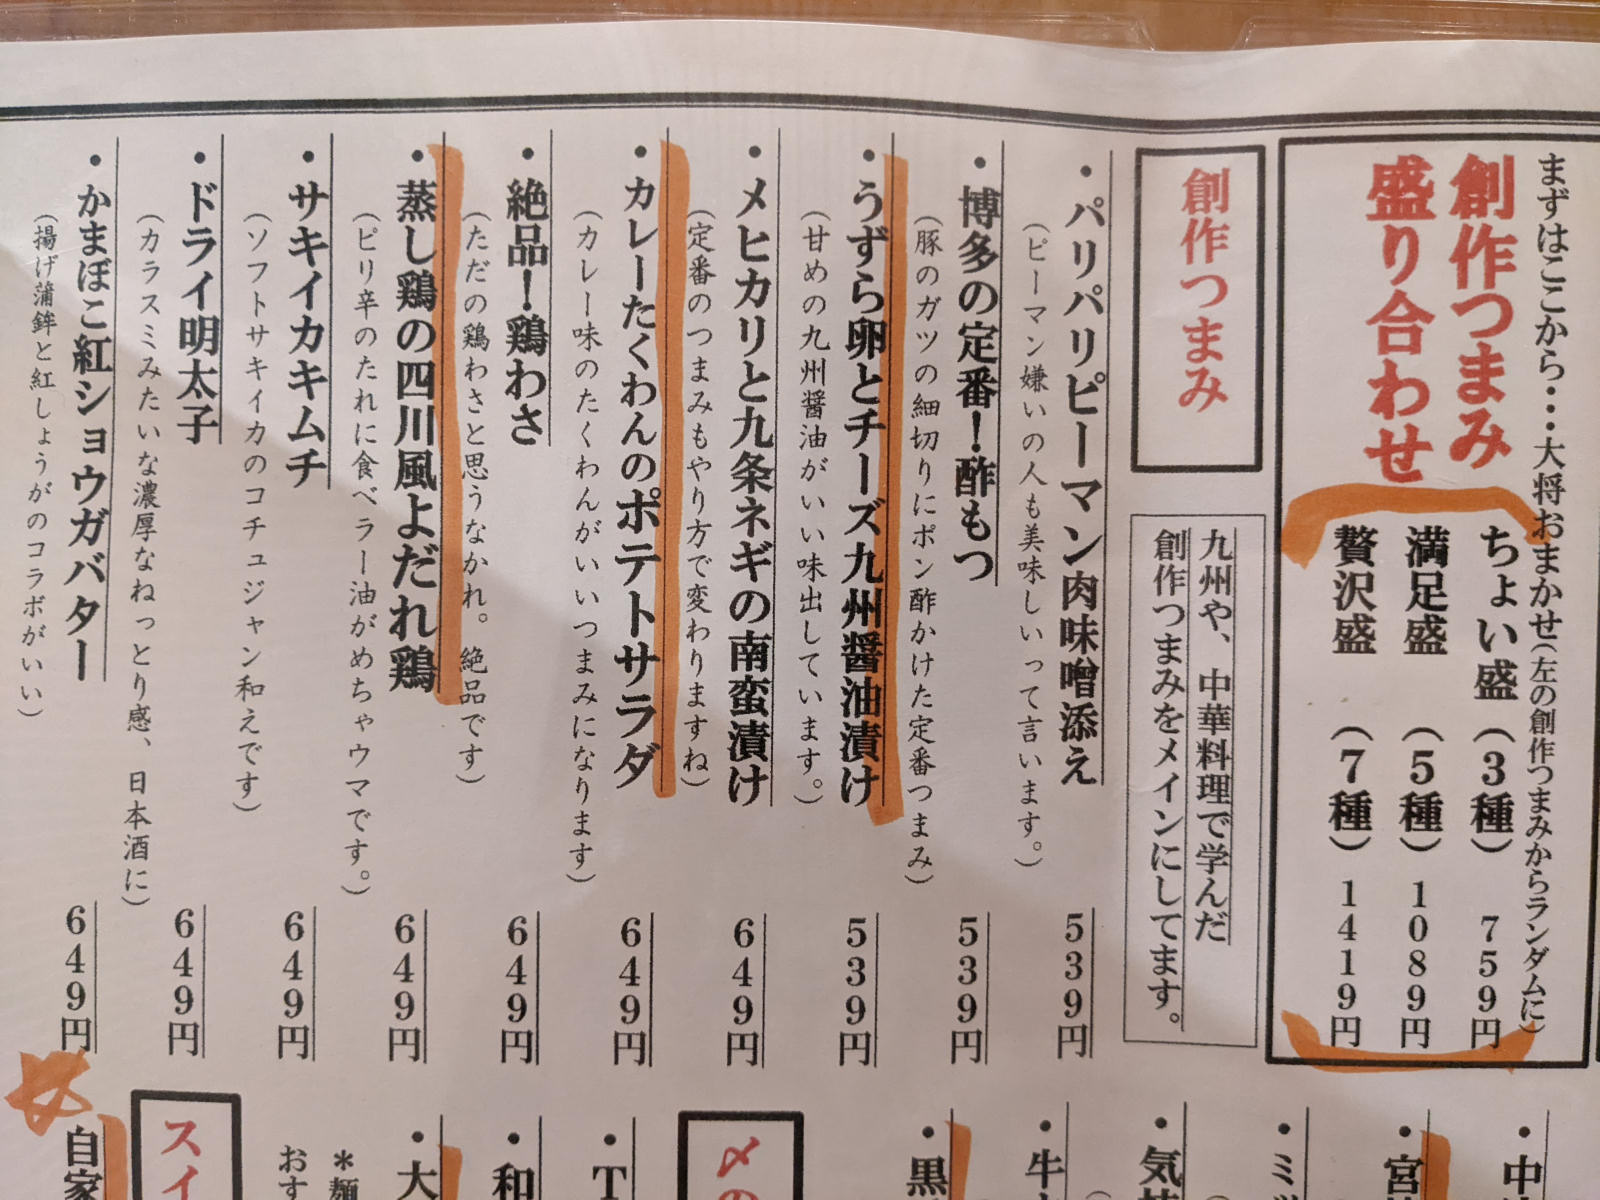 まずはここから・・・大将おまかせ(左の創作つまみからランダムに)
創作つまみ
盛り合わせ
ちょい盛（3種）759円
満足盛（5種）1089円
贅沢盛（7種）1419円
創作つまみ
九州や、中華料理で学んだ
創作つまみをメインにしてます。
・パリパリピーマン肉味噌添え 539円
（ピーマン嫌いの人も美味しいって言います。）
・博多の定番！酢もつ 539円
（豚のガツの細切りにポン酢かけた定番つまみ）
・うずら卵とチーズ九州醤油漬け 539円
（甘めの九州醤油がいい味出しています。）
・メヒカリと九条ネギの南蛮漬け 649円
（定番のつまみもやり方で変わりますね）
・カレーたくわんのポテトサラダ 649円
（カレー味のたくわんがいいつまみになります）
・絶品！鶏わさ 649円
（ただの鶏わさと思うなかれ。絶品です）
・蒸し鶏の四川風よだれ鶏 649円
（ピリ辛のたれに食べラー油がめちゃウマです。）
・サキイカキムチ 649円
（ソフトサキイカのコチュジャン和えです）
・ドライ明太子 649円
（カラスミみたいな濃厚なねっとり感、日本酒に）
・かまぼこ紅ショウガバター 649円
（揚げ蒲鉾と紅しょうがのコラボがいい）
・中
・宮
・ミ
・気
・牛
・黒
〆の
・T
・和
・大
＊麺
おす
スイ
自家